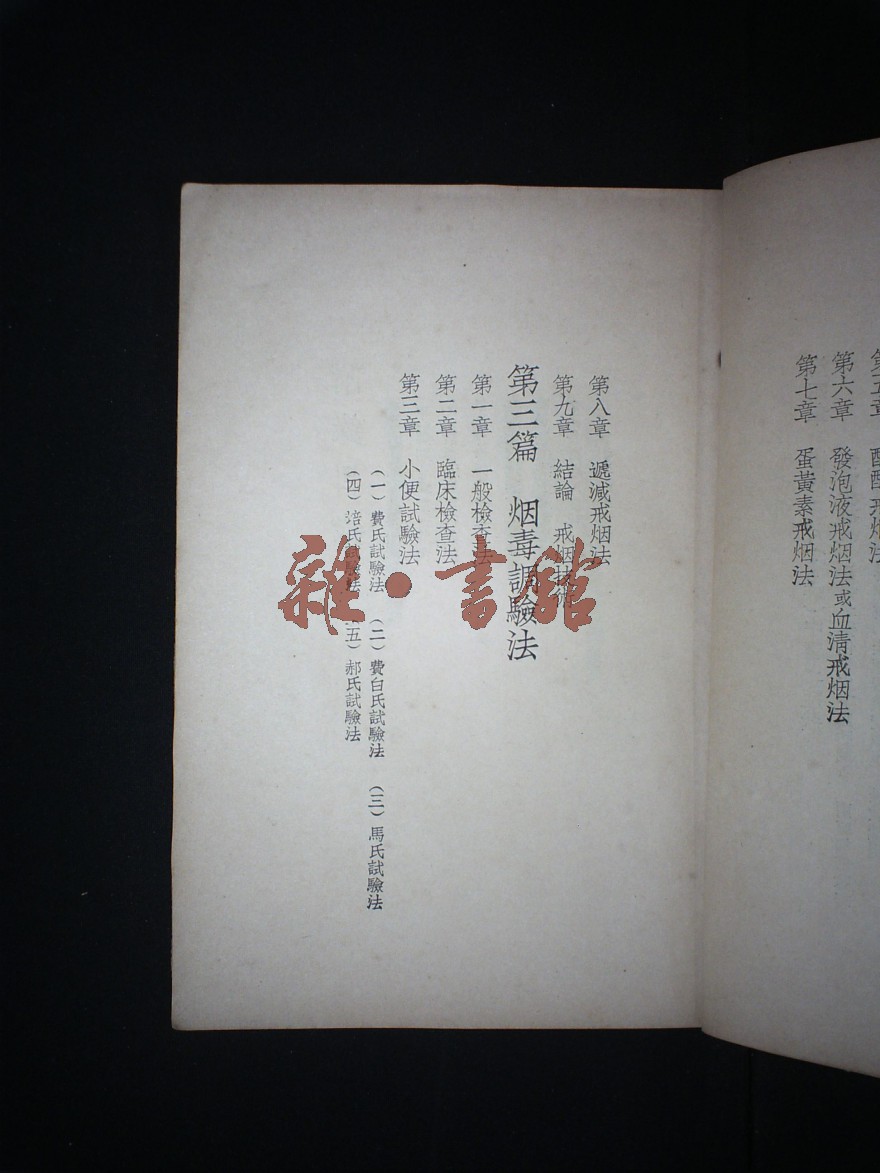 第六章　發泡液戒烟法或血清戒烟法
第七章　蛋黃素戒烟法
第八章　遞減戒烟法
第九章　結論　戒烟
第三篇　烟毒調驗法
第一章　一般檢查法
第二章　臨床檢查法
第三章　小便試驗法
（一）費氏試驗法　（二）費白氏試驗法　（三）馬氏試驗法
（四）涪氏試驗法　（五）郝氏試驗法
雜·書館